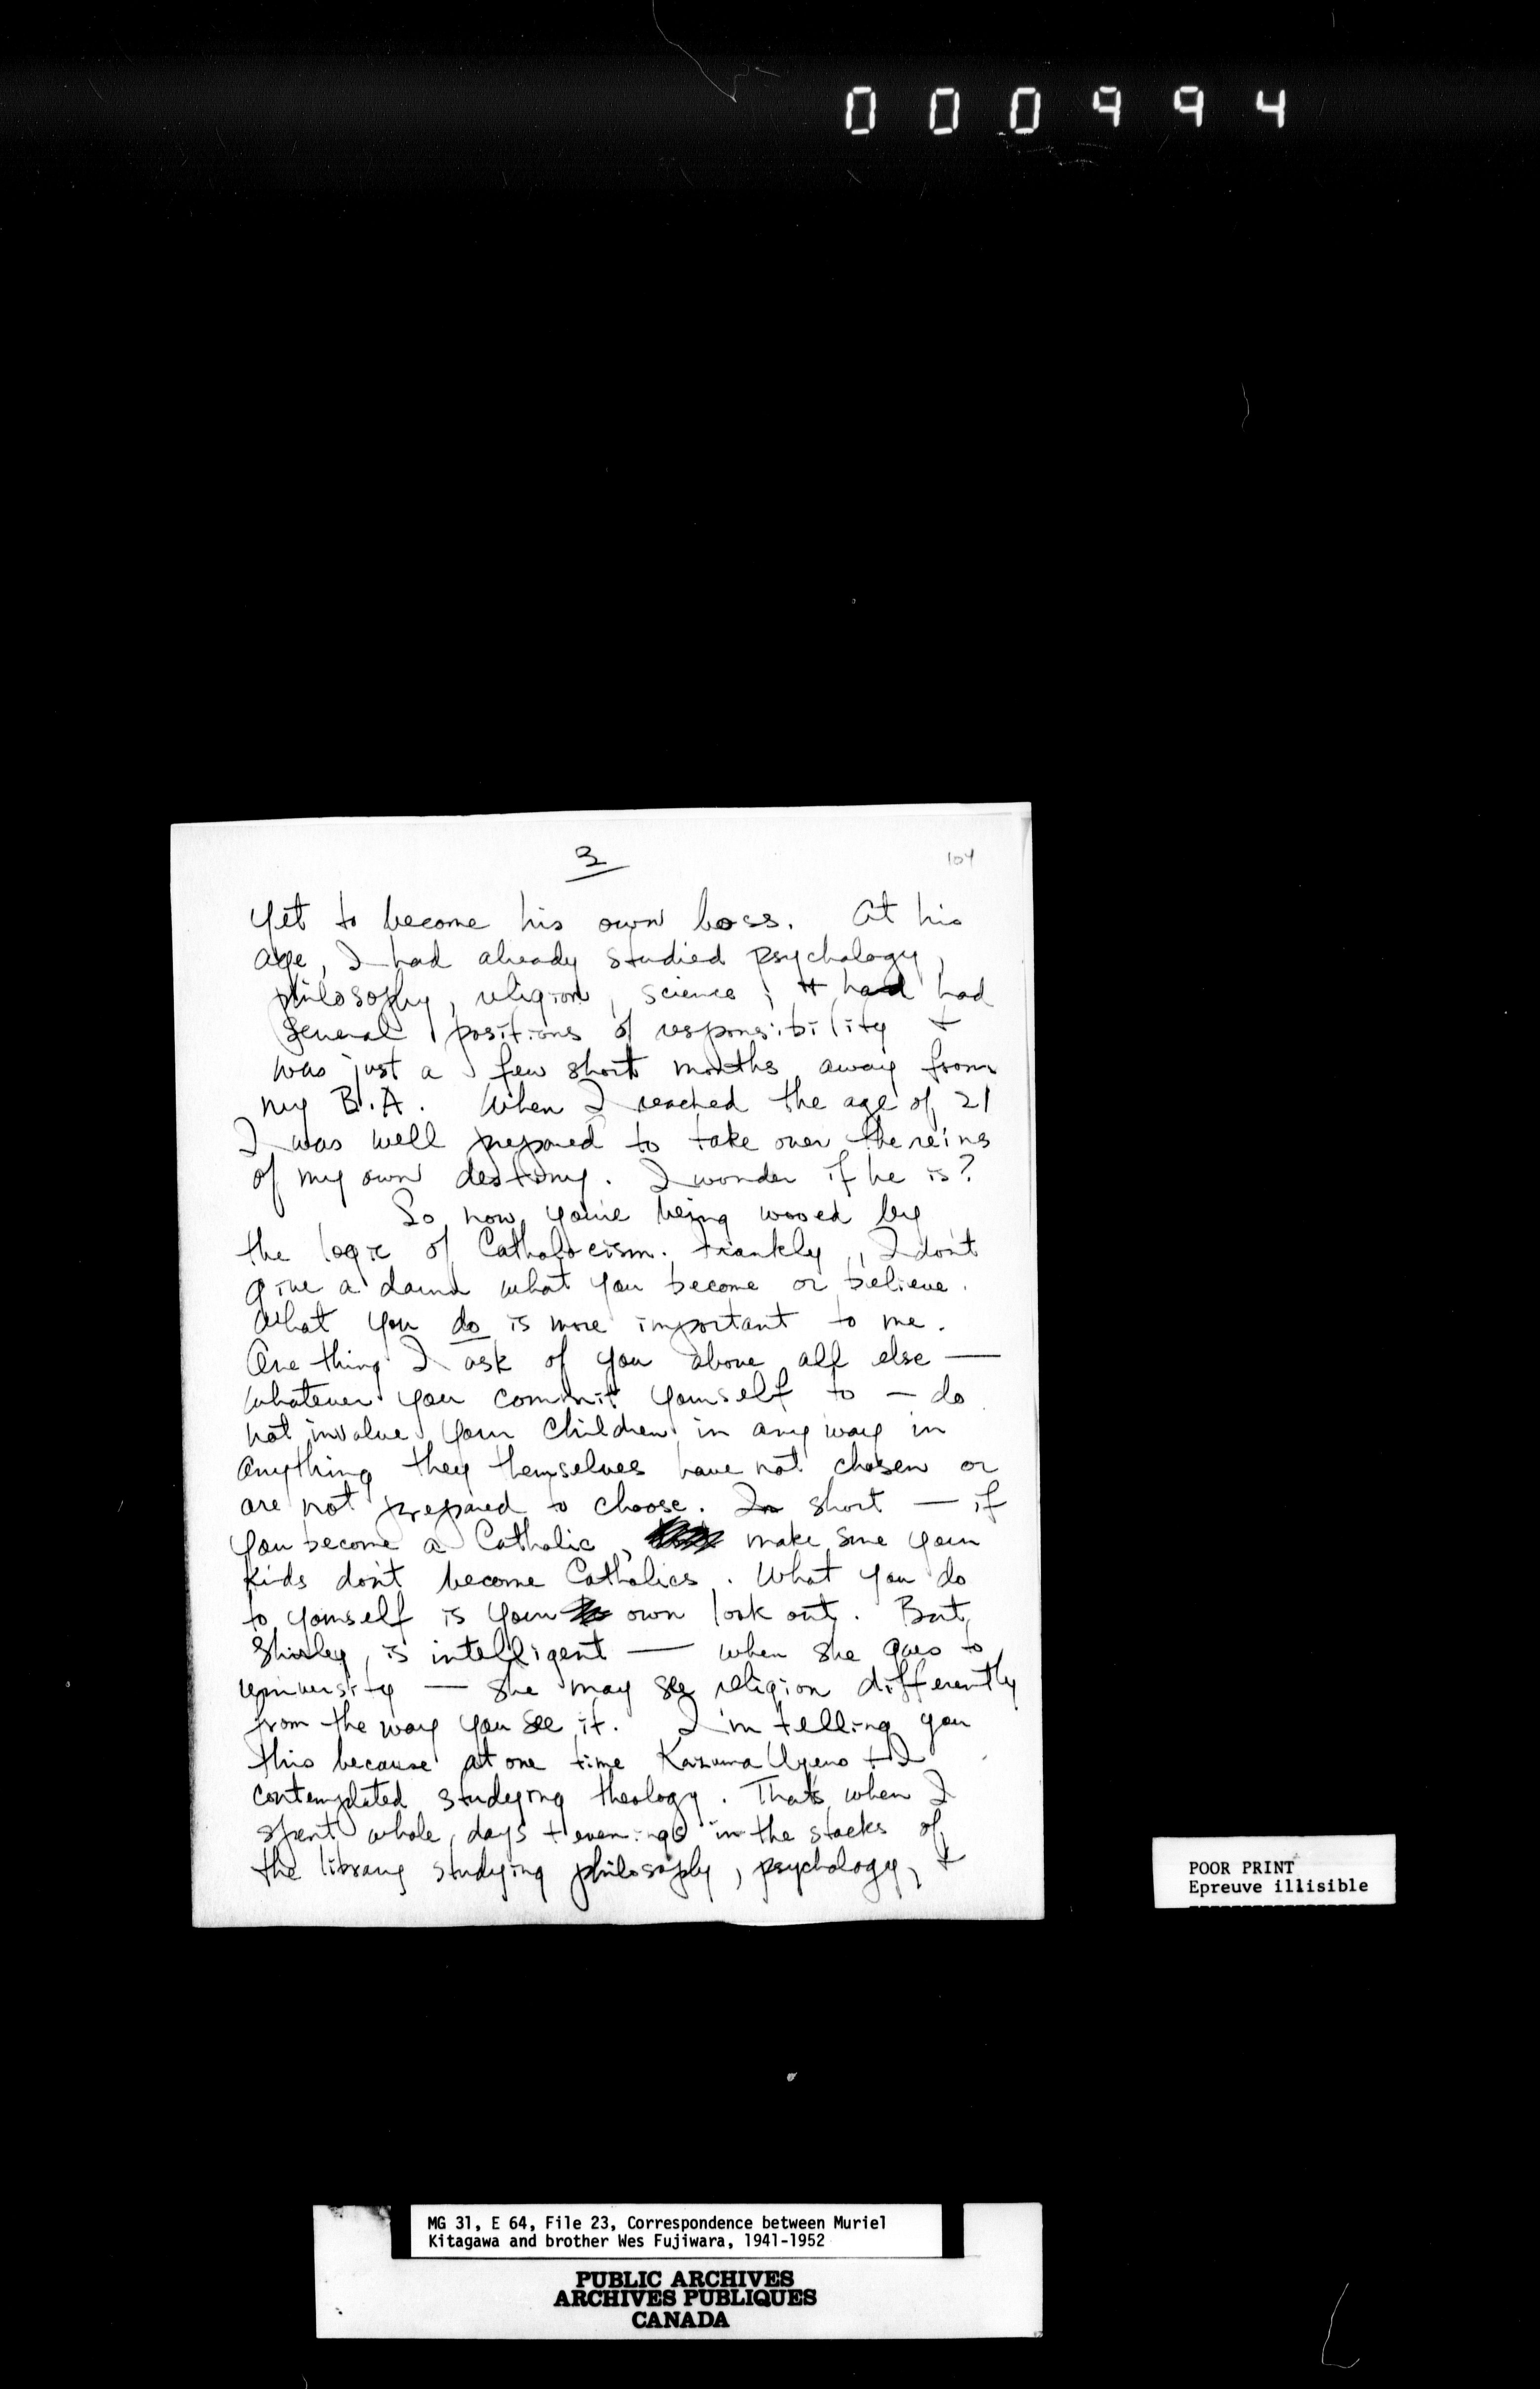 000994
3
104
Yet to become his own boss. At his
age, I had already studied psychology,
philosophy, religion, science; & had had
several positions of responsibility +
was just a few short months away from
my B.A. When I reached the age of 21
I was well prepared to take over the reins
of my own destiny. I wonder if he is?
So now you're being wooed by
the logic of Catholocism. Frankly, I don't
give a damn what you become or believe.
What you do is more important to me.
One thing I ask of you above all else —
Whatever you commit yourself to — do
not involve your children in any way in
anything they themselves have not chosen or
are not prepared to choose. In short — if
you become a Catholic, make sure your
kids don't become Catholics. What you do
to yourself is your own look out. But,
Shirley, is intelligent — when she goes to
university — she may see religion differently
from the way you see it. I'm telling you
this because at one time Kazuma Uyeno + I
contemplated studying theology. That's when I
spent whole days + evenings in the stacks of
the library studying philosophy, psychology, +
POOR PRINT
Epreuve illisible
MG 31, E 64, File 23, Correspondence between Muriel
Kitagawa and brother Wes Fujiwara, 1941-1952
PUBLIC ARCHIVES
ARCHIVES PUBLIQUES
CANADA